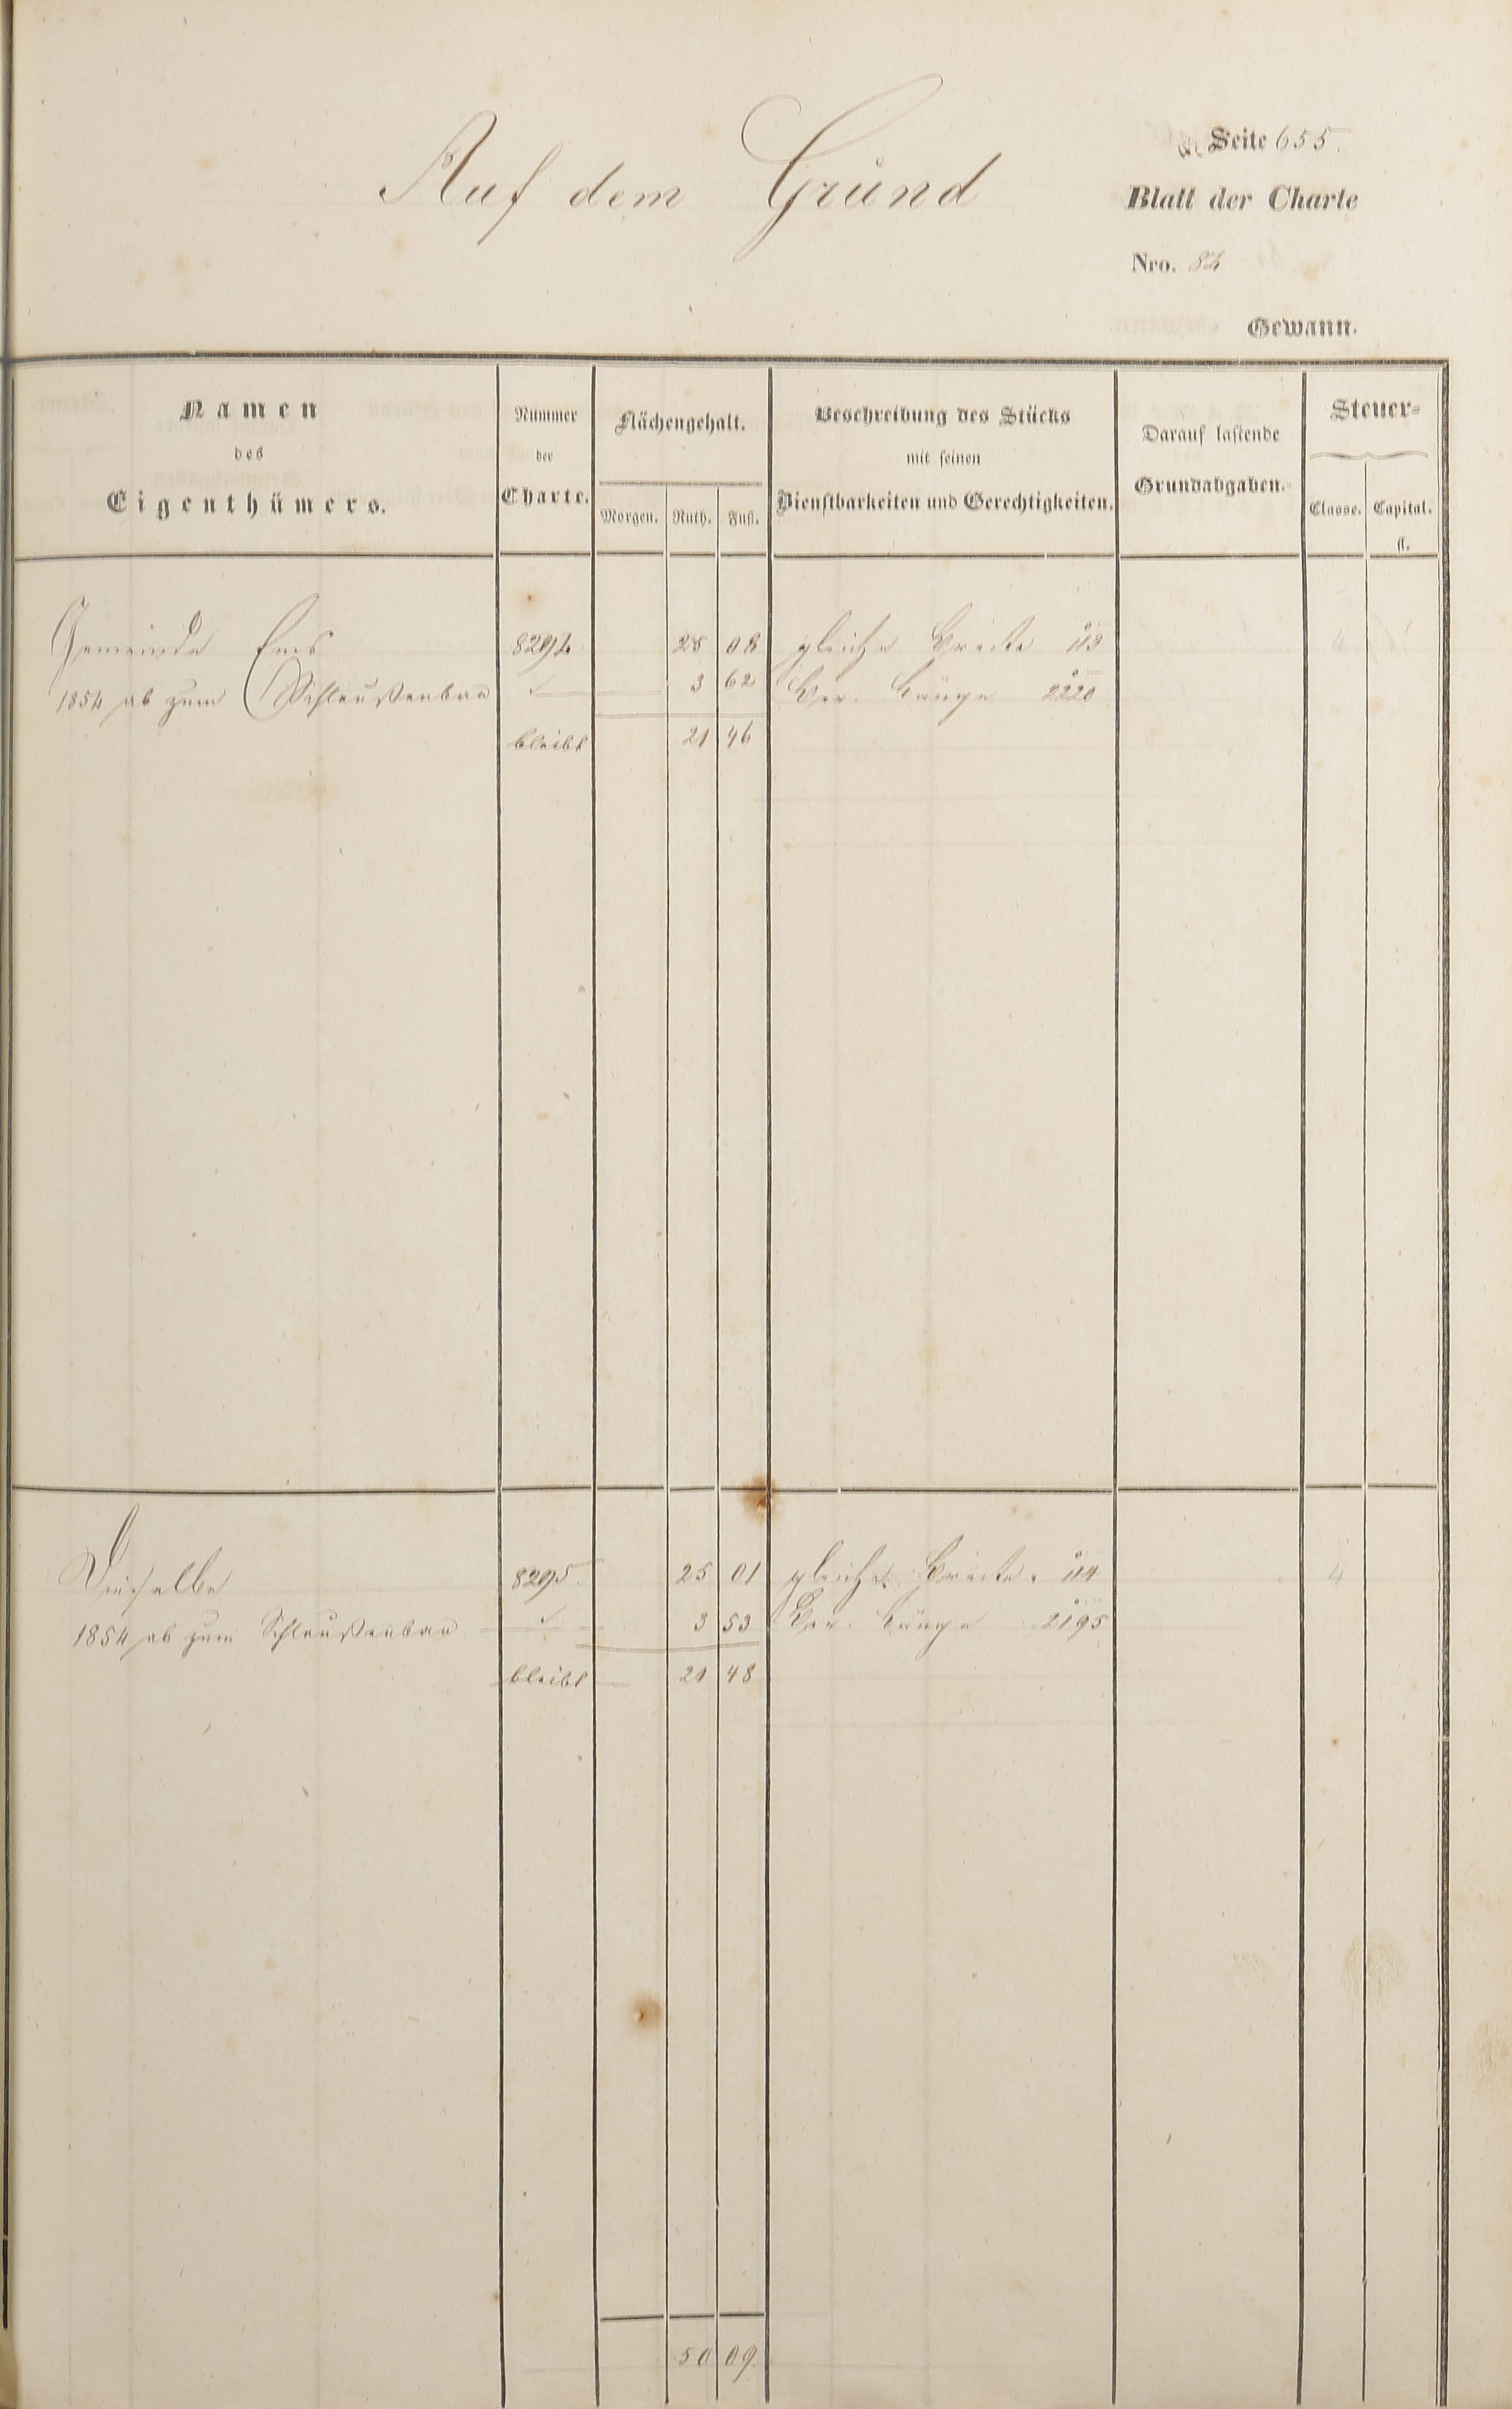 Seite 655.
Auf dem Gründ
Blatt der Charte
Nro. 82
Gewann.
Namen des Eigenthümers.
Nummer der Charte.
Flächengehalt.
Morgen. Ruth. Fuß.
Beschreibung des Stücks mit seinen Dienstbarkeiten und Gerechtigkeiten.
Darauf lastende Grundabgaben.
Steuer-
Classe. Capital. fl.
Gemeinde Ems 8294 25 08 gleiche Breite 113 4
1854 ab zum Schleußenbau 3 62 Ver. Länge 2220
bleibt 21 46
Dieselbe 8295 25 01 gleiche Breite 114 4
1854 ab zum Schleußenbau 3 53 Ver. Länge 2195
bleibt 21 48
50 09